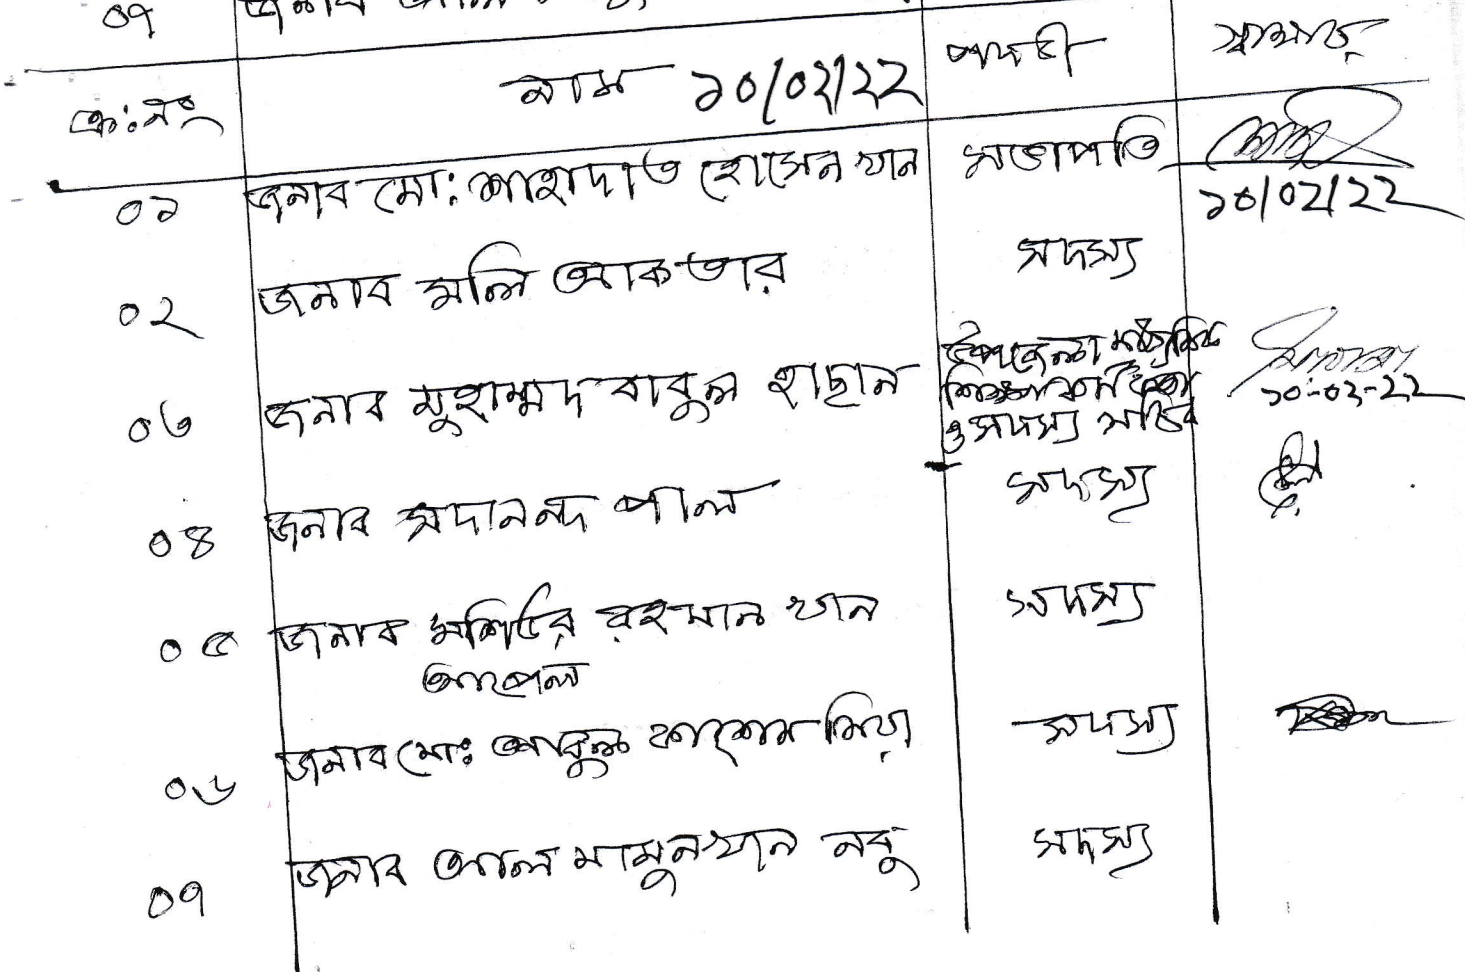 ০৭ জনাব আল
ক্র:নং নাম ১০/০২/২২ পদবী স্বাক্ষর
০১ জনাব মো: শাহাদাত হোসেন খান সভাপতি
১০/০২/২২
০২ জনাব মলি আকতার সদস্য
০৩ জনাব মুহাম্মদ বাবুল হাছান উপজেলা মাধ্যমিক
শিক্ষা কর্মকর্তা
ও সদস্য সচিব
১০-০২-২২
০৪ জনাব সদানন্দ পাল সদস্য
০৫ জনাব মশিউর রহমান খান সদস্য
আপেল
০৬ জনাব মো: আবুল কাশেম মিয়া সদস্য
০৭ জনাব আল মামুন খান নবু সদস্য